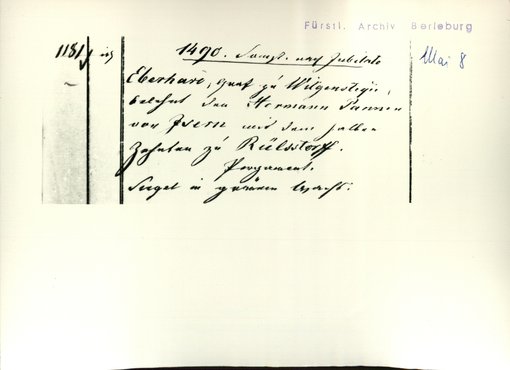 Fürstl. Archiv Berleburg
Mai 8
1181
1490. Sampst. nach Jubilate
Eberhard, Graf zu Witgenstein,
belehnt den Hermann
von Isern mit dem halben
Zehnten zu Rülsdorff.
Pergament.
Siegel in grünem Wachs.